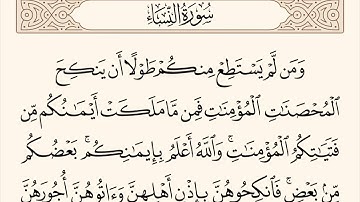 سُورَةُ النِّسَاءِ
وَمَن لَّمْ يَسْتَطِعْ مِنكُمْ طَوْلًا أَن يَنكِحَ
الْمُحْصَنَاتِ الْمُؤْمِنَاتِ فَمِن مَّا مَلَكَتْ أَيْمَانُكُم مِّن
فَتَيَاتِكُمُ الْمُؤْمِنَاتِ ۚ وَاللَّهُ أَعْلَمُ بِإِيمَانِكُم ۚ بَعْضُكُم
مِّن بَعْضٍ ۚ فَانكِحُوهُنَّ بِإِذْنِ أَهْلِهِنَّ وَءَاتُوهُنَّ أُجُورَهُنَّ